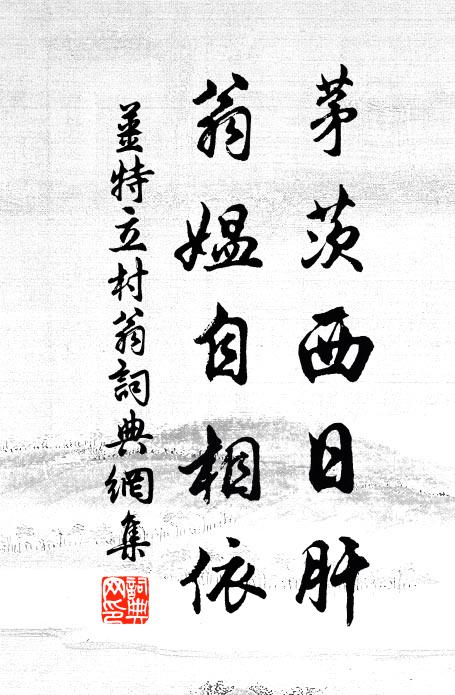 茅茨西日肝
翁媪自相依
姜特立村翁詞典網集
詞典网印